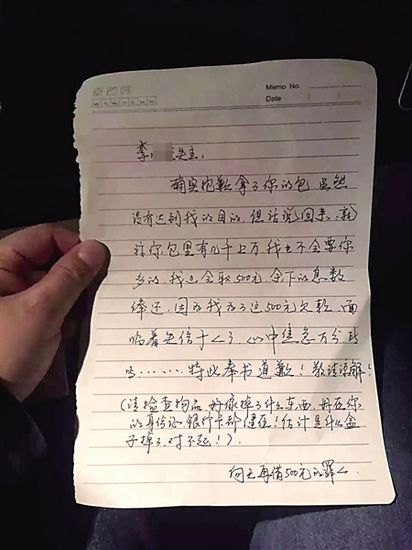 Memo No.
Date / /
Mo Tu We Th Fr Sa Su
李 失主:
确实抱歉拿了你的包,虽然
没有达到我的目的,但话说回来,就
你包里有几千上万,我也不会要你
多的,我只会取500元,余下的悉数
奉还,因为我为了这500元欠款,面
临着失信于人了,心中焦急万分
呜……特此奉书道歉!敬请谅解!
(请检查物品,好像掉了什么东西,好在你
的身份证、银行卡都健在!估计是什么盒
子掉了,对不起!)
向天再借500元的罪人